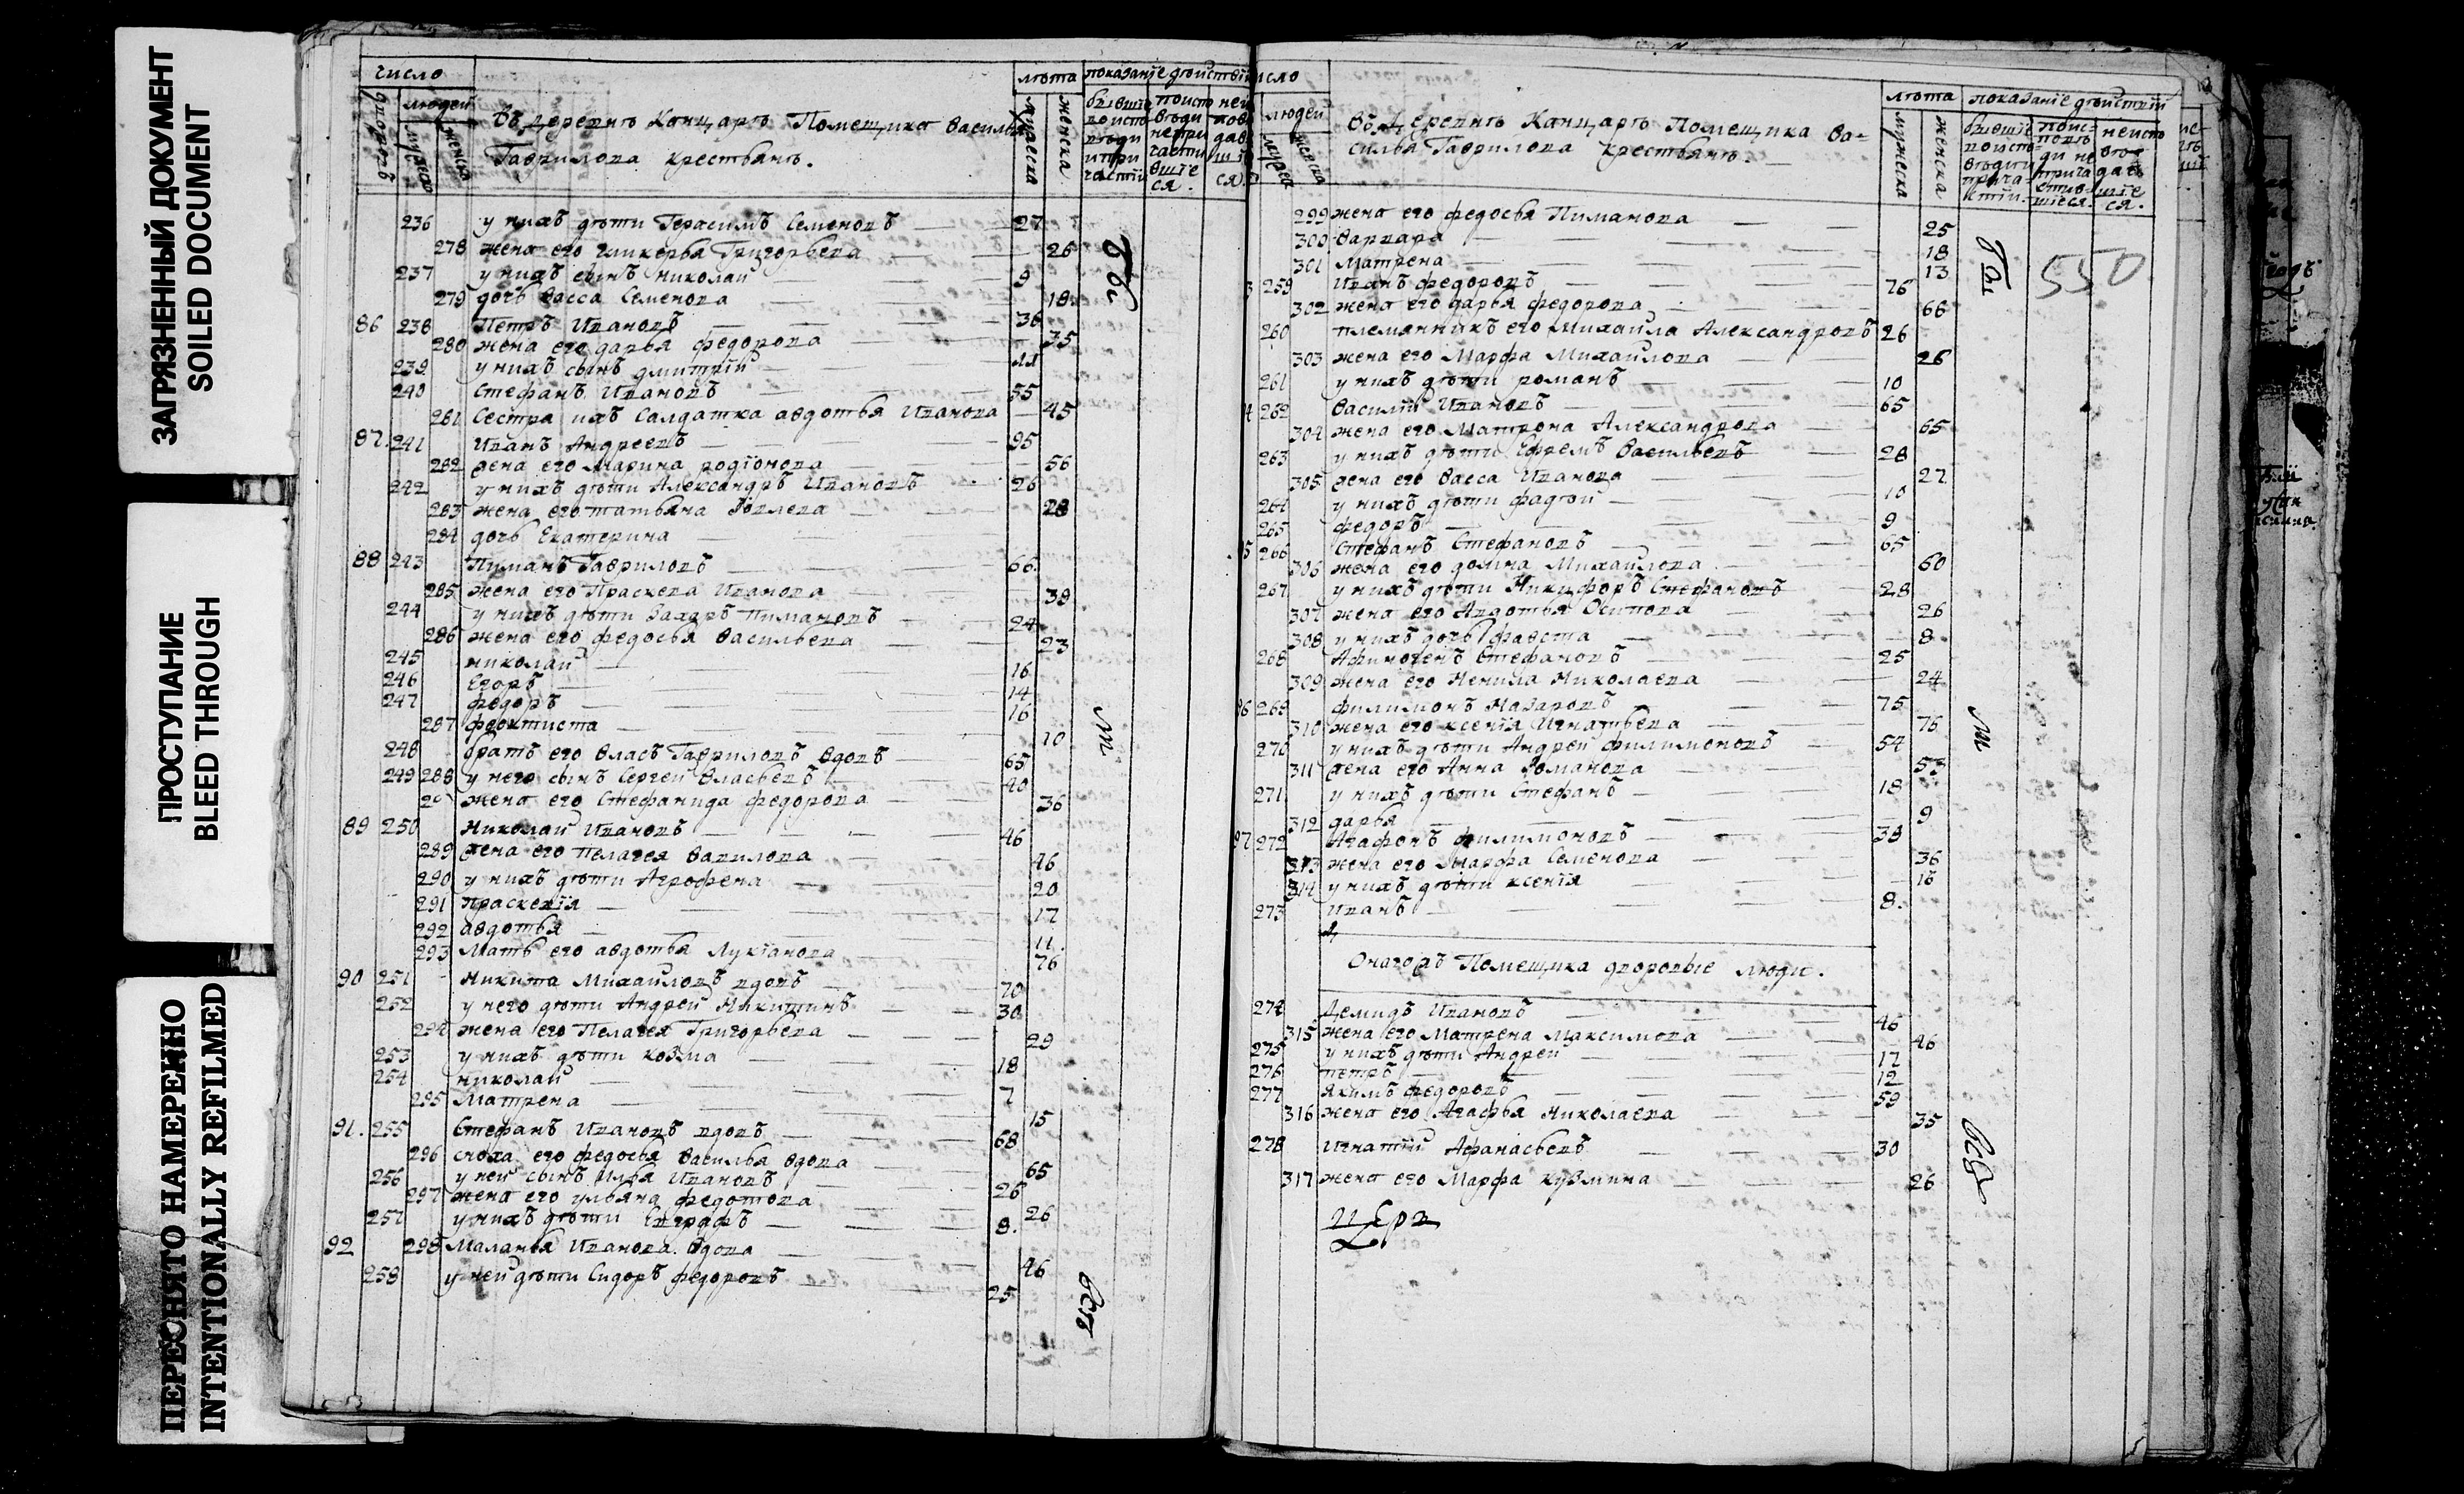 ЗАГРЯЗНЕННЫЙ ДОКУМЕНТ
SOILED DOCUMENT
ПРОСТУПАНИЕ
BLEED THROUGH
ПЕРЕСНЯТО НАМЕРЕННО
INTENTIONALLY REFILMED
число лѣта показанїе дѣйствїи
людей мужеска женска
Въ деревнѣ Канцарѣ Помещика Василья
Гаврилова крестьянъ.
236 у нихъ дѣти Герасимъ Семеновъ 27
278 жена его гликерья Григорьева 26
237 у нихъ сынъ николай 9
279 дочь Васса Семенова 18
86 238 Петръ Ивановъ 36
280 жена его дарья федорова 35
239 у нихъ сынъ дмитрїй 11
240 Стефанъ Ивановъ 55
281 Сестра ихъ Салдатка авдотья Иванова 45
87 241 Иванъ Андреевъ 95
282 жена его Марина родїонова 56
242 у нихъ дѣти Александръ Ивановъ 26
283 жена его татьяна 28
284 дочь Екатерина
88 243 Пиманъ Гавриловъ 66
285 жена его Праскева Иванова 39
244 у нихъ дѣти Захаръ Пимановъ 24
286 жена его федосья Васильева 23
245 николай 16
246 Егоръ 14
247 федоръ 16
287 феоктиста 10
248 братъ его Власъ Гавриловъ вдовъ 65
249 288 у него сынъ Сергей Власьевъ 40
жена его Стефанида федорова 36
89 250 Николай Ивановъ 46
289 жена его Пелагея Вавилова 46
290 у нихъ дѣти Агрофена 20
291 праскевїя 17
292 авдотья 11.
293 Мать его авдотья Лукїанова 76
90 251 Никита Михайловъ вдовъ 70
252 у него дѣти Андрей Никитинъ 30
294 жена его Пелагея Григорьева 29
253 у нихъ дѣти козма 18
254 николай 7
295 Матрена 15
91. 255 Стефанъ Ивановъ вдовъ 68
296 сноха его федосья Василья вдова 65
256 у ней сынъ Илья Ивановъ 26
297 жена его ульяна федотова 26
257 у нихъ дѣти Евграфъ 8.
92 298 Маланья Иванова вдова 46
258 у ней дѣти Сидоръ федоровъ 25
число лѣта показанїе дѣйствїй
людей мужеска женска
Въ Деревнѣ Канцарѣ Помещика Ва=
силья Гаврилова крестьянъ.
299 жена его федосья Пиманова 25
300 Варвара 18
301 Матрена 13
3 259 Иванъ федоровъ 76
302 жена его дарья федорова 66
260 племянникъ его Михайла Александровъ 26
303 жена его Марфа Михайлова 26
261 у нихъ дѣти романъ 10
4 262 Василїй Ивановъ 65
304 жена его Матрона Александрова 65
263 у нихъ дѣти Ефремъ Васильевъ 28
305 жена его Васса Иванова 27
264 у нихъ дѣти фадѣй 10
265 федоръ 9
5 266 Стефанъ Стефановъ 65
306 жена его домна Михайлова 60
267 у нихъ дѣти Никифоръ Стефановъ 28
307 жена его Авдотья Осипова 26
308 у нихъ дочь фавста 8
268 Афиногенъ Стефановъ 25
309 жена его Ненила Николаева 24
96 269 филимонъ Назаровъ 75
310 жена его ксенїя Игнатьева 75
270 у нихъ дѣти Андрей филимоновъ 54
311 жена его Анна Романова 53
271 у нихъ дѣти Стефанъ 18
312 дарья 9
97 272 Агафонъ филимоновъ 38
313 жена его Марфа Семенова 36
314 у нихъ дѣти ксенїя 16
273 Иванъ 8.
Онагожъ Помещика дворовые люди.
274 Демидъ Ивановъ 46
315 жена его Матрена Максимова 46
275 у нихъ дѣти Андрей 17
276 петръ 12
277 Якимъ федоровъ 59
316 жена его Агафья Николаева 35
278 Игнатїй Афанасьевъ 30
317 жена его Марфа кузмина 26
550